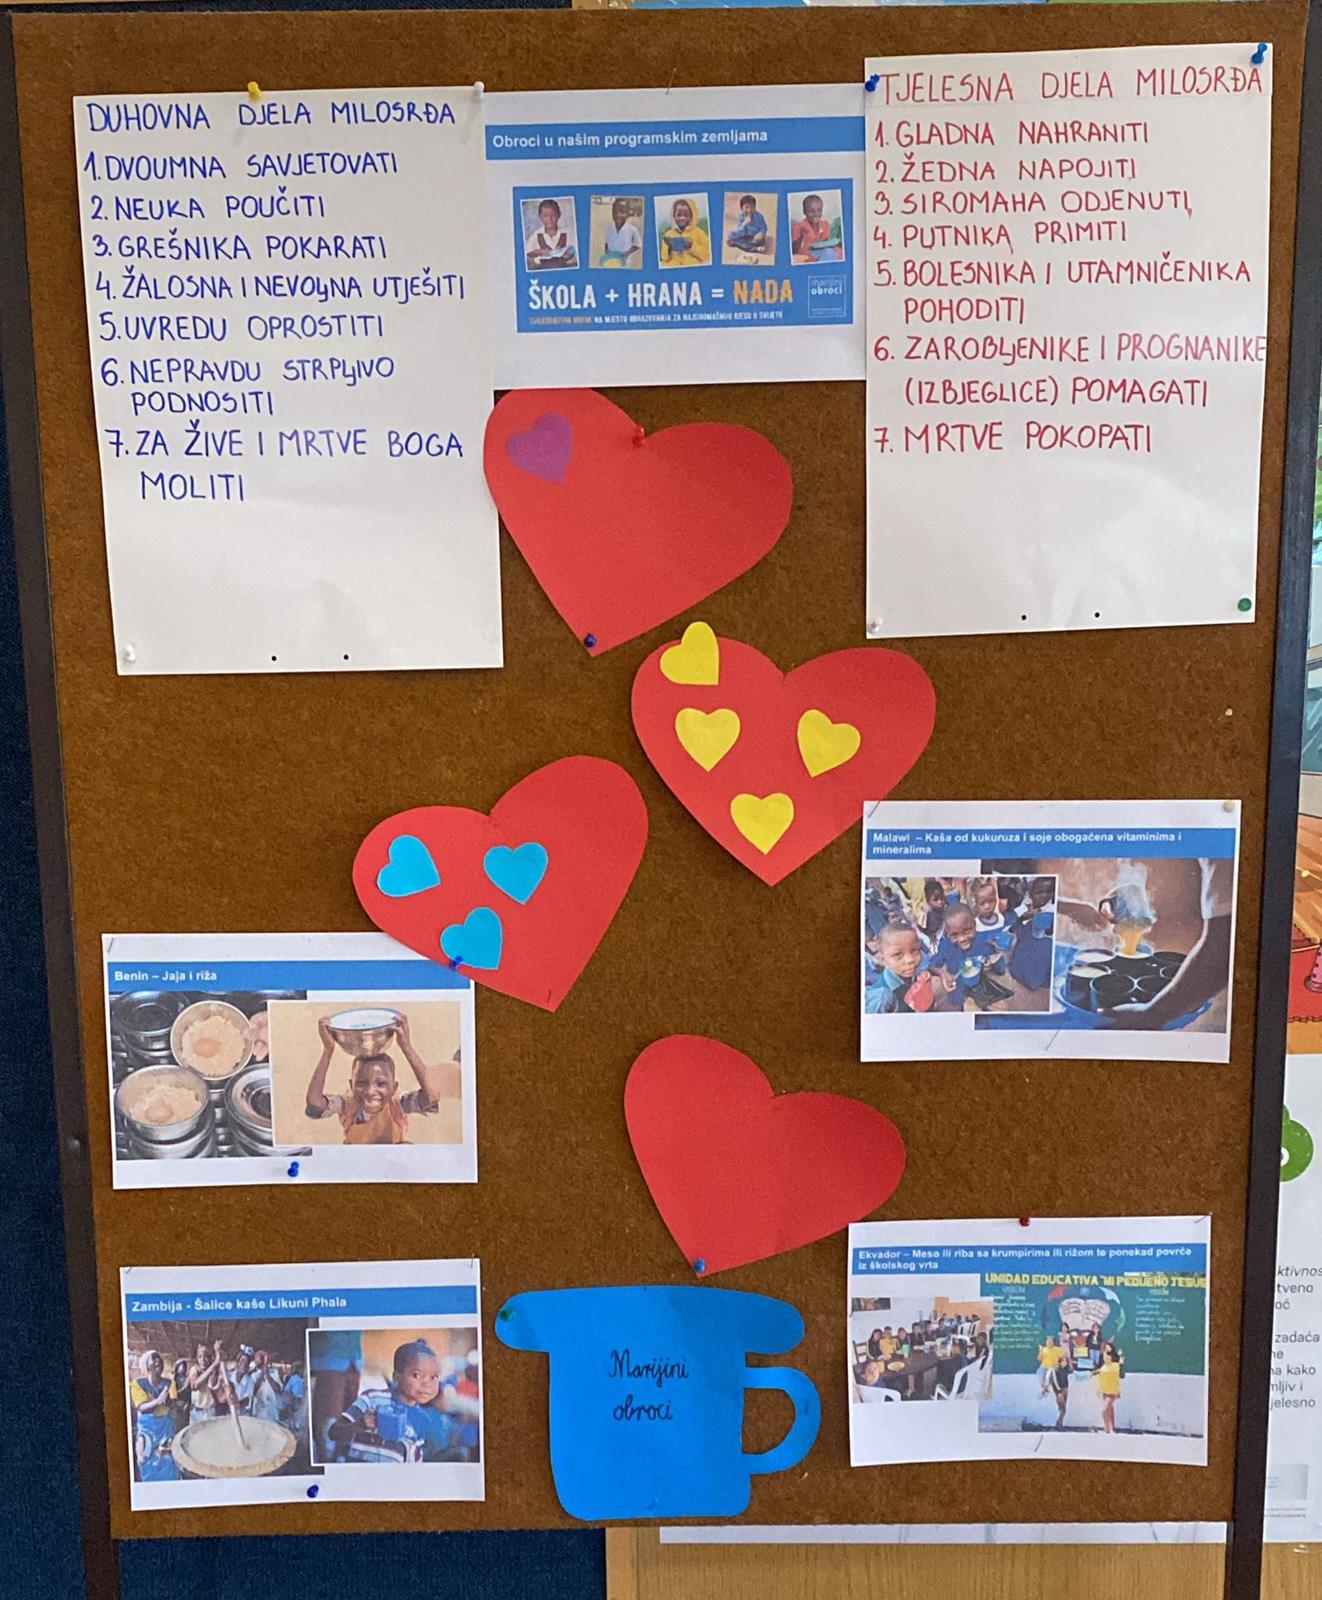 DUHOVNA DJELA MILOSRĐA
1. DVOUMNA SAVJETOVATI
2. NEUKA POUČITI
3. GREŠNIKA POKARATI
4. ŽALOSNA I NEVOLJNA UTJEŠITI
5. UVREDU OPROSTITI
6. NEPRAVDU STRPLJIVO
PODNOSITI
7. ZA ŽIVE I MRTVE BOGA
MOLITI
Obroci u našim programskim zemljama
ŠKOLA + HRANA = NADA
obroci
NA MJESTU OBRAZOVANJA ZA NAJSIROMAŠNIJU DJECU U SVIJETU
TJELESNA DJELA MILOSRĐA
1. GLADNA NAHRANITI
2. ŽEDNA NAPOJITI
3. SIROMAHA ODJENUTI
4. PUTNIKA PRIMITI
5. BOLESNIKA I UTAMNIČENIKA
POHODITI
6. ZAROBLJENIKE I PROGNANIKE
(IZBJEGLICE) POMAGATI
7. MRTVE POKOPATI
Malawi – Kaša od kukuruza i soje obogaćena vitaminima i
mineralima
Benin – Jaja i riža
Zambija - Šalice kaše Likuni Phala
Marijini
obroci
Ekvador – Meso ili riba sa krumpirima ili rižom te ponekad povrće
iz školskog vrta
UNIDAD EDUCATIVA "MI PEQUEÑO JESUS
ktivnos
tveno
zadaća
na kako
mljiv i
jelesno